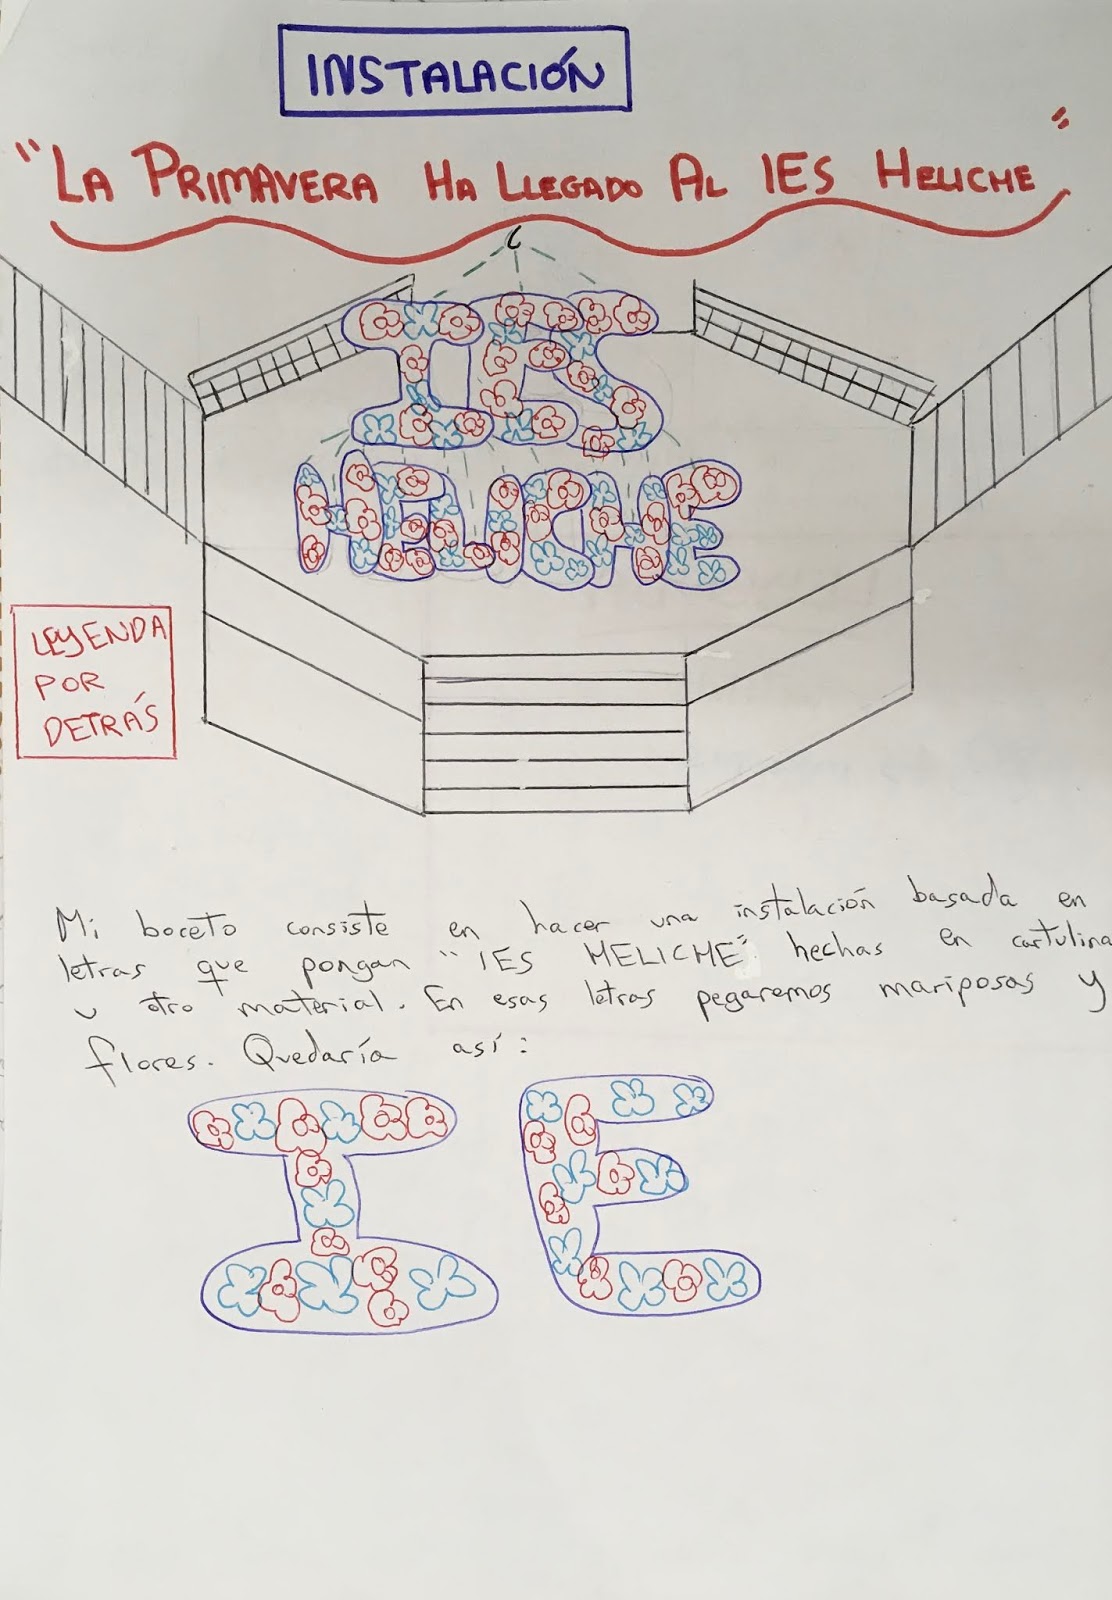 INSTALACIÓN
"LA PRIMAVERA HA LLEGADO AL IES HELICHE"
IES
HELICHE
LEYENDA
POR
DETRÁS
Mi boceto consiste en hacer una instalación basada en
letras que pongan "IES HELICHE" hechas en cartulina
u otro material. En esas letras pegaremos mariposas y
flores. Quedaría así:
I E